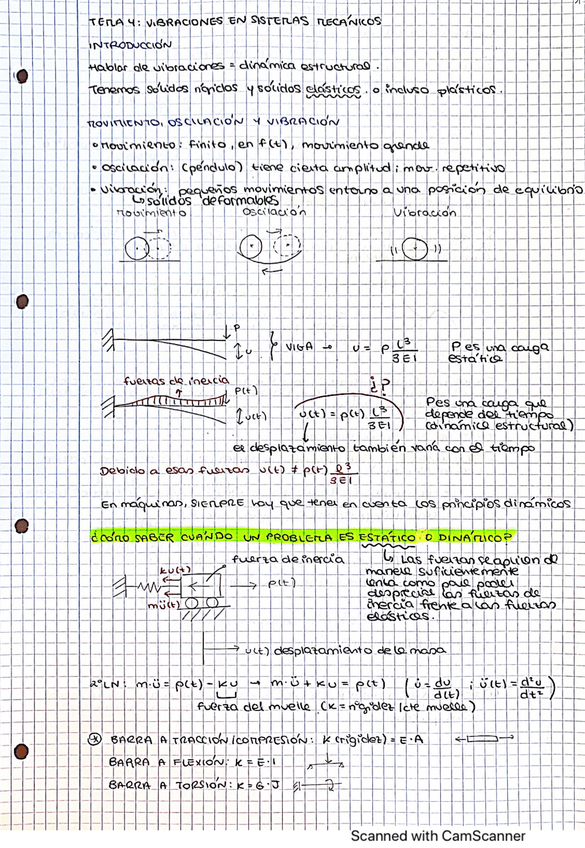 TEMA 4: VIBRACIONES EN SISTEMAS MECÁNICOS
INTRODUCCIÓN
Hablar de vibraciones = dinámica estructural.
Tenemos sólidos rígidos y sólidos elásticos. o incluso plásticos.
MOVIMIENTO, OSCILACIÓN Y VIBRACIÓN
• Movimiento: finito, en f(t), movimiento grande
• Oscilación: (péndulo) tiene cierta amplitud; mov. repetitivo
• Vibración: pequeños movimientos entorno a una posición de equilibrio
↳ sólidos deformables
Movimiento Oscilación Vibración
P
u
VIGA → u = P L³/3EI
P es una carga estática
fuerzas de inercia
P(t)
u(t)
¿?
u(t) = P(t) L³/3EI
P es una carga que
depende del tiempo
(dinámica estructural)
el desplazamiento también varía con el tiempo
Debido a esas fuerzas u(t) ≠ P(t) l³/3EI
En máquinas, SIEMPRE hay que tener en cuenta los principios dinámicos
¿CÓMO SABER CUÁNDO UN PROBLEMA ES ESTÁTICO O DINÁMICO?
↳ Las fuerzas se aplican de
manera suficientemente
lenta como para poder
despreciar las fuerzas de
inercia frente a las fuerzas
elásticas.
fuerza de inercia
ku(t)
P(t)
mü(t)
→ u(t) desplazamiento de la masa
2ª LN: m·ü = P(t) - ku → m·ü + ku = P(t) (u̇ = du/d(t) ; ü(t) = d²u/dt²)
fuerza del muelle (k = rigidez / cte muelle)
* BARRA A TRACCIÓN/COMPRESIÓN: K (rigidez) = E·A
BARRA A FLEXIÓN: K = E·I
BARRA A TORSIÓN: K = G·J
Scanned with CamScanner